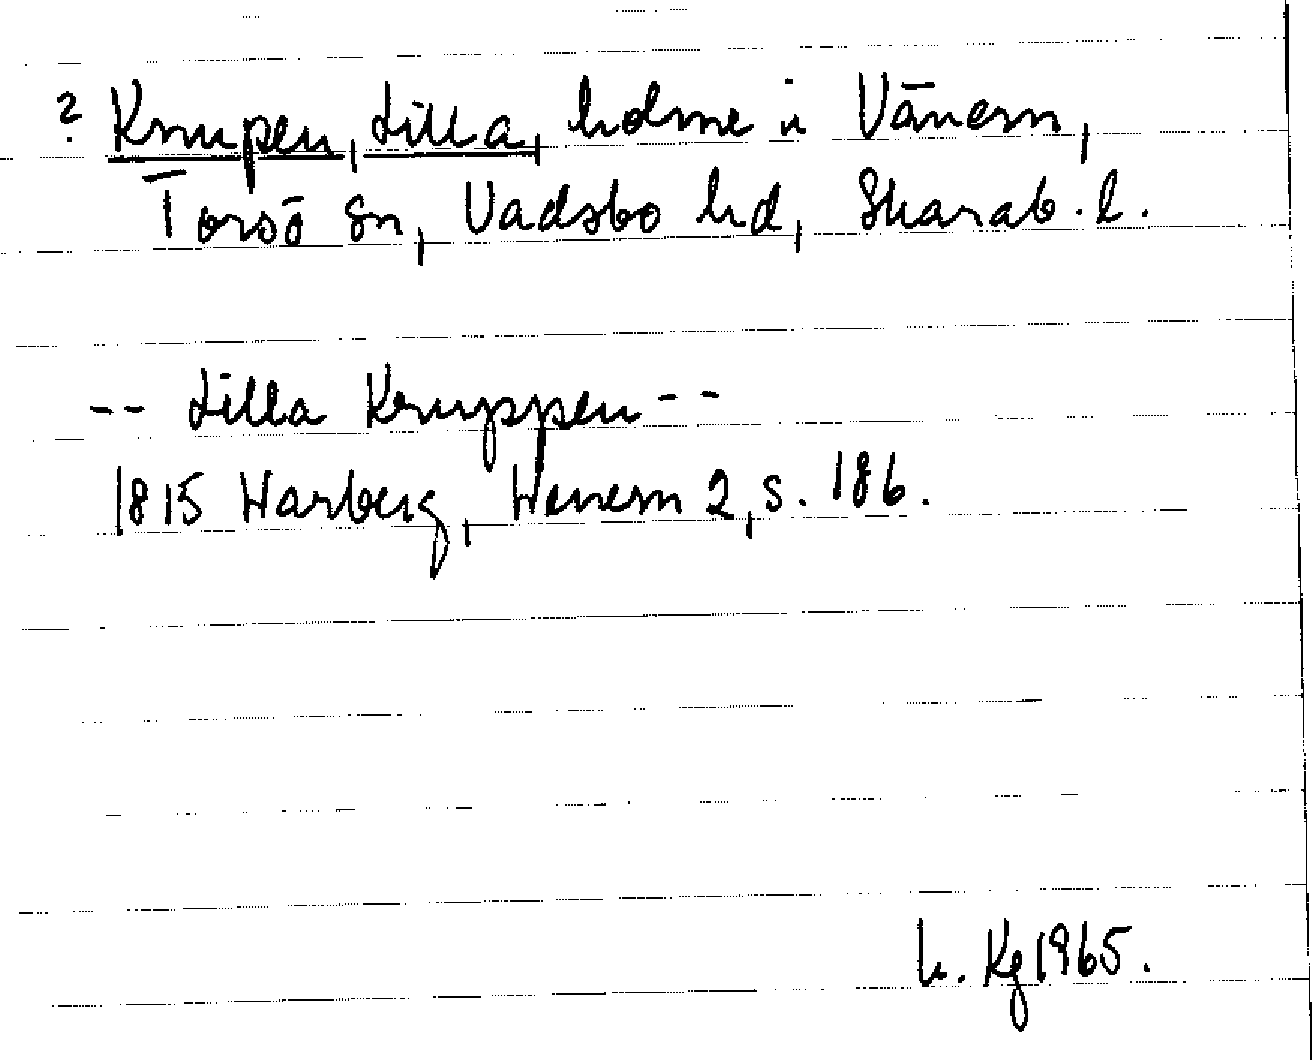 ? Knupen, Lilla, holme i Vänern,
Torsö sn, Vadsbo hd, Skarab. l.
-- Lilla Knuppen --
1815 Warberg, Wenern 2, s. 186.
h. Kg 1965.